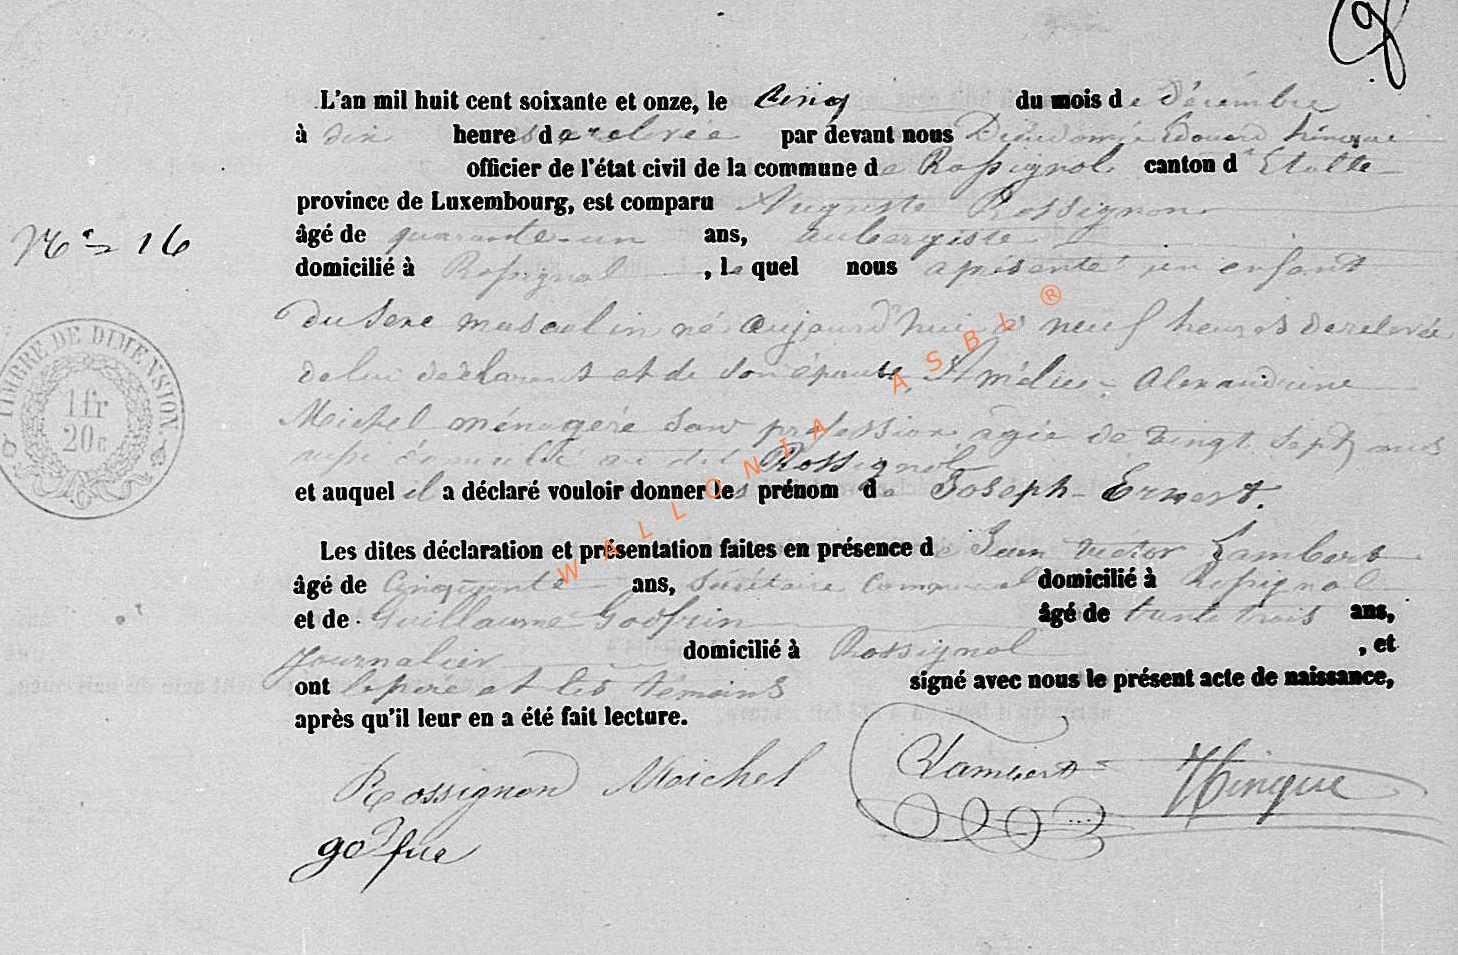 L'an mil huit cent soixante et onze, le Cinq du mois de Décembre
à dix heures de relevée par devant nous Dieudonné Edouard Hincque
officier de l'état civil de la commune de Rossignol canton d'Etalle
province de Luxembourg, est comparu Auguste Rossignon
N° 16
âgé de quarante-un ans, aubergiste
domicilié à Rossignol, lequel nous a présenté un enfant
du sexe masculin né aujourd'hui à neuf heures de relevée
de lui déclarant et de son épouse Amélie - Alexandrine
Michel ménagère sans profession âgée de vingt sept ans
domicilié au dit Rossignol
et auquel il a déclaré vouloir donner les prénom de Joseph - Ernest.
Les dites déclaration et présentation faites en présence de Jean Victor Lambert
âgé de Cinquante ans, Secrétaire Communal domicilié à Rossignol
et de Guillaume Godfrin âgé de trente trois ans,
Journalier domicilié à Rossignol, et
ont le père et les témoins signé avec nous le présent acte de naissance,
après qu'il leur en a été fait lecture.
Rossignon Michel Lambert Hincque
TIMBRE DE DIMENSION
1 fr
20 c
WALLONIA ASBL ®